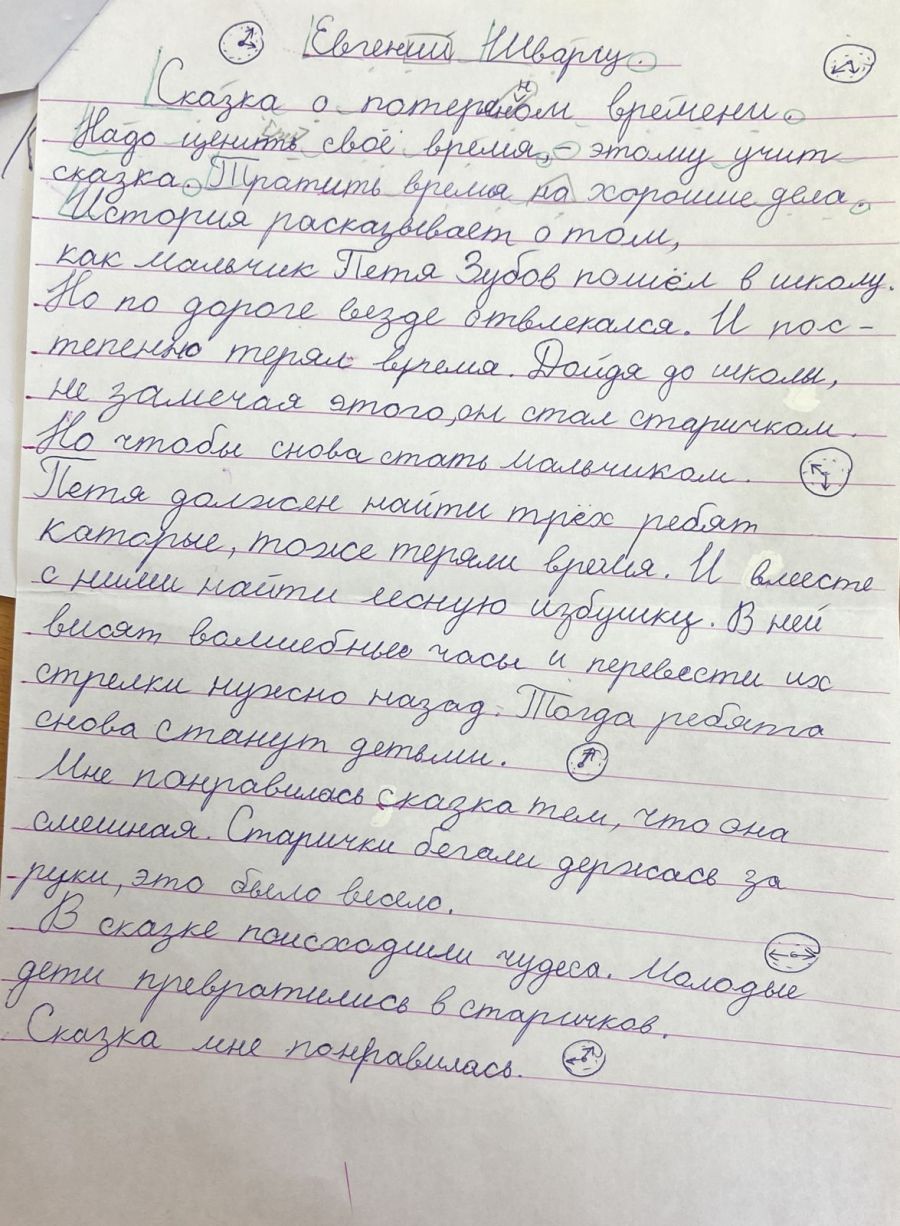 Евгений Шваргу.
Сказка о потеряном времени.
Надо ценить своё время, - этому учит
сказка. Тратить время на хорошие дела.
История расказывает о том,
как мальчик Петя Зубов пошёл в школу.
Но по дороге везде отвлекался. И пос-
тепенно терял время. Дойдя до школы,
не замечая этого, он стал старичком.
Но чтобы снова стать мальчиком.
Петя должен найти трёх ребят
каторые, тоже теряли время. И вместе
с ними найти лесную избушку. В ней
висят волшебные часы и перевести их
стрелки нужно назад. Тогда ребята
снова станут детьми.
Мне понравилась сказка тем, что она
смешная. Старички бегали держась за
руки, это было весело.
В сказке поисходили чудеса. Молодые
дети превратились в старичков.
Сказка мне понравилась.